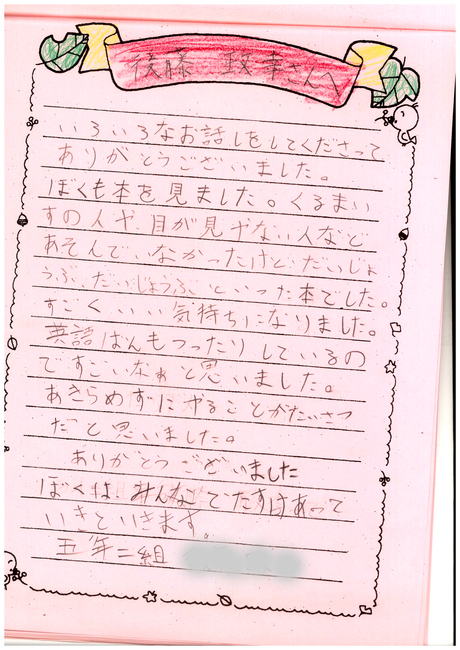 後藤 政幸さんへ
いろいろなお話しをしてくださって
ありがとうございました。
ぼくも本を見ました。くるまい
すの人や、目が見やない人など
あそんでいなかったけど、だいじょ
うぶ、だいじょうぶといった本でした。
すごくいい気持ちになりました。
英語はんもつったりしているの
ですごいなぁと思いました。
あきらめずにやることがたいせつ
だと思いました。
ありがとうございました
ぼくは、みんなでたすけあって
いきといきます。
五年二組